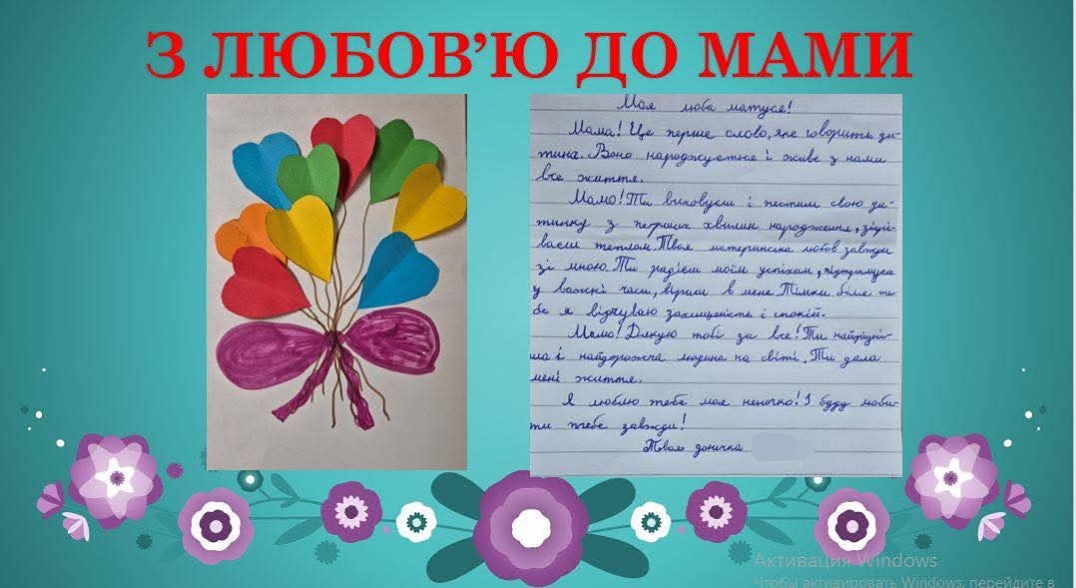 З ЛЮБОВ’Ю ДО МАМИ
Моя люба матусе!
Мама! Це перше слово, яке говорить ди-
тина. Воно народжується і живе з нами
все життя.
Мамо! Ти виховуєш і пестиш свою ди-
тинку з перших хвилин народження, зігрі-
ваєш теплом. Твоя материнська любов завжди
зі мною. Ти радієш моїм успіхам, підтримуєш
у важкі часи, віриш в мене. Тільки біля те-
бе я відчуваю захищеність і спокій.
Мамо! Дякую тобі за все! Ти найрідні-
ша і найдорожча людина на світі. Ти дала
мені життя.
Я люблю тебе моя неночко! І буду люби-
ти тебе завжди!
Твоя донечка
Активация Windows
Чтобы активировать Windows, перейдите в